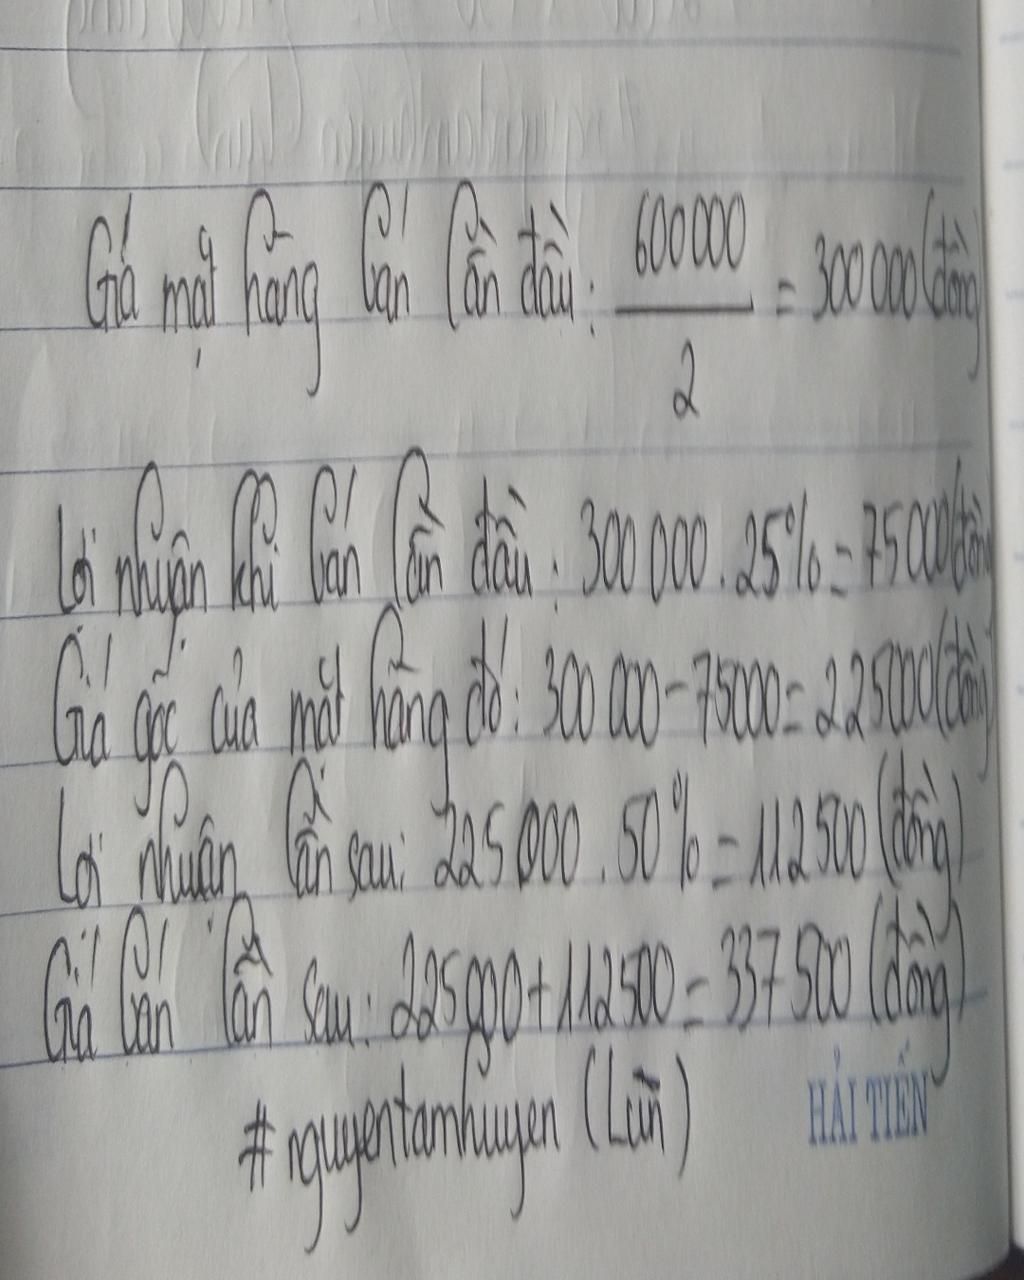 Giá mặt hàng bán lần đầu: 600 000 / 2 = 300 000 (đồng)
Lợi nhuận khi bán lần đầu: 300 000 . 25% = 75000 (đồng)
Giá gốc của mặt hàng đó: 300 000 - 75000 = 225000 (đồng)
Lợi nhuận lần sau: 225 000 . 50% = 112 500 (đồng)
Giá bán lần sau: 225000 + 112500 = 337 500 (đồng)
#nguyentamhuyen (Lùn)
HẢI TIẾN